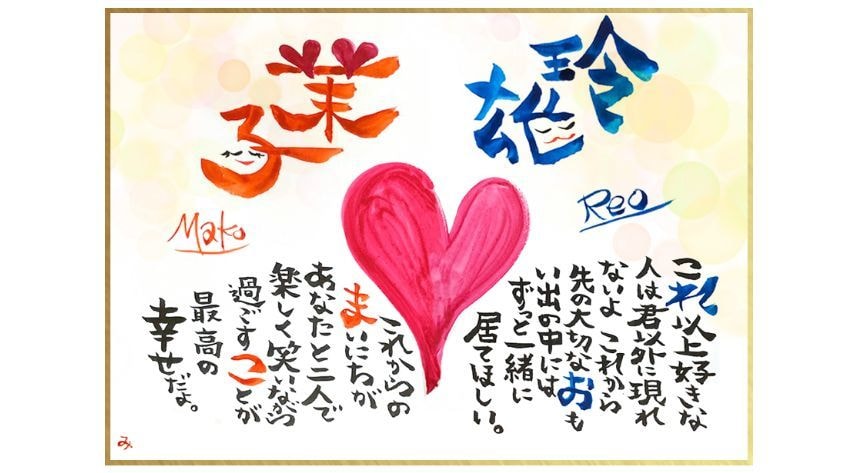 玲雄
茉子
Reo
Mako
これ以上好きな
人は君以外に現れ
ないよ これから
先の大切なおも
い出の中には
ずっと一緒に
居てほしい。
これからの
まいにちが
あなたと二人で
楽しく笑いながら
過ごすことが
最高の
幸せだよ。
み